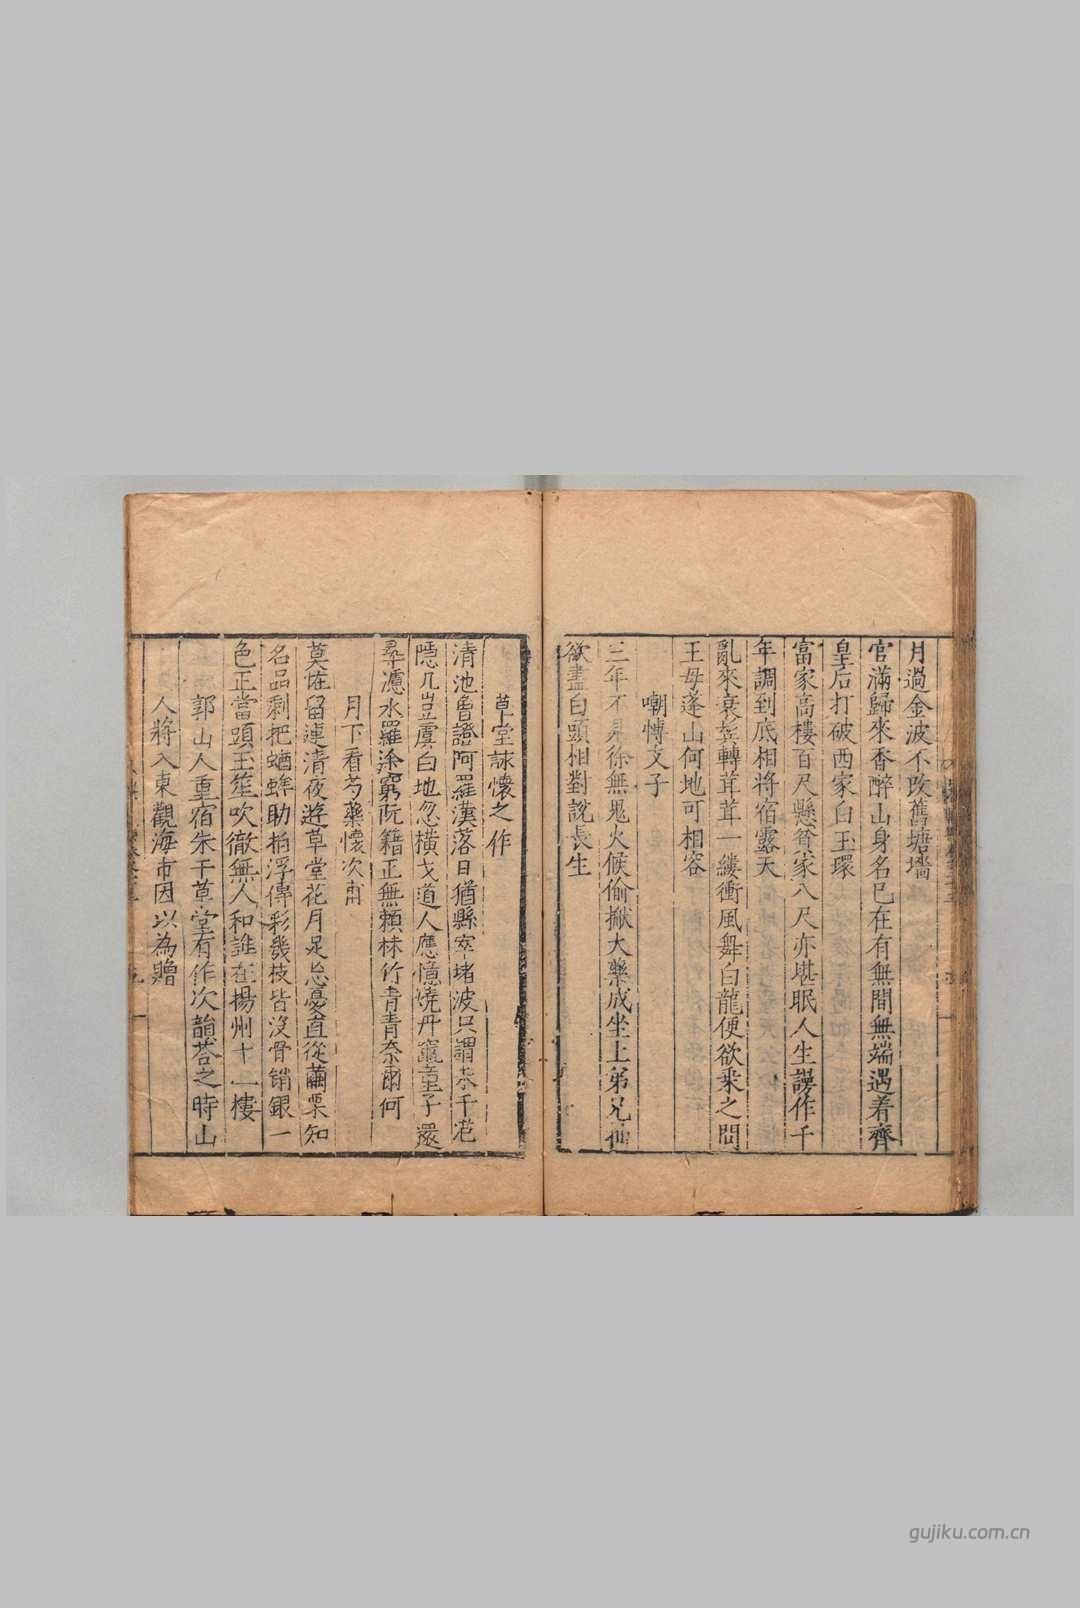 月過金波不改舊塘墻
官滿歸來香醉山身名已在有無間無端遇着齊
皇后打破西家白玉環
富家高樓百尺懸貧家八尺亦堪眠人生謾作千
年調到底相將宿露天
亂來衰鬂轉茸茸一縷衝風舞白龍便欲乘之問
王母蓬山何地可相容
嘲博文子
三年不見徐無鬼火候偷掀大藥成坐上弟兄仙
欲盡白頭相對說長生
草堂詠懷之作
清池魯證阿羅漢落日猶縣窣堵波只謂恭千老
隱几豈虞白地忽橫戈道人應憶燒丹竈童子還
尋濾水羅途窮阮籍正無賴林竹青青奈爾何
月下看芍藥懷次甫
莫怪留連清夜遊草堂花月足忘憂直從繭栗知
名品剩把蝤蛑助拍浮傳彩幾枝皆沒骨銷銀一
色正當頭玉笙吹徹無人和誰在揚州十二樓
郭山人重宿朱干草堂有作次韻荅之時山
人將入東觀海市因以為贈
gujiku.com.cn